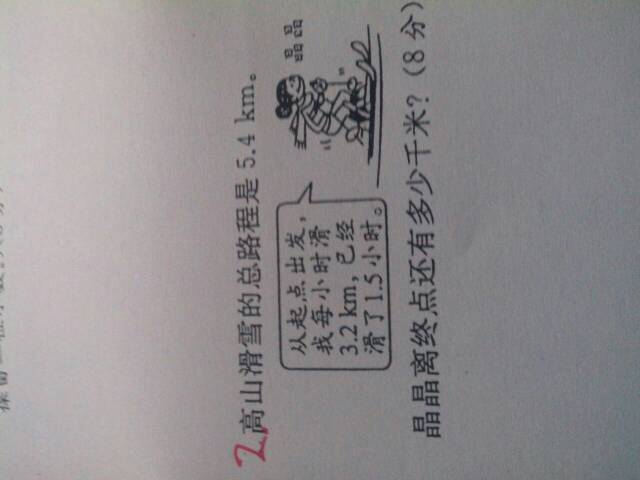 2.高山滑雪的总路程是5.4 km。
晶晶
从起点出发，
我每小时滑
3.2 km，已经
滑了1.5小时。
晶晶离终点还有多少千米？(8分)